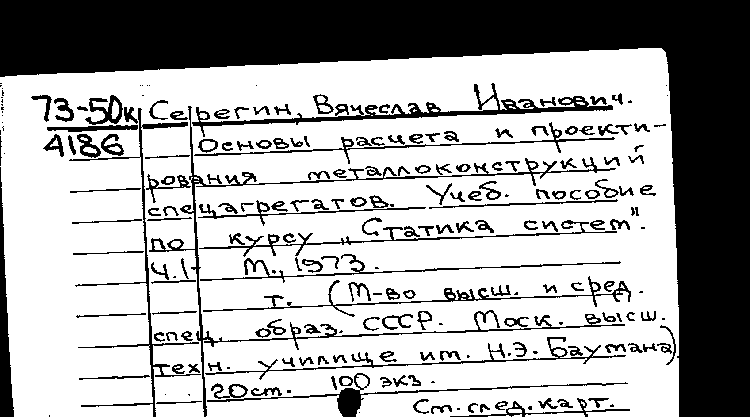 73-50к Серегин, Вячеслав Иванович.
4186 Основы расчета и проекти-
рования металлоконструкций
спецагрегатов. Учеб. пособие
по курсу „Статика систем".
Ч.1- М., 1973.
т. (М-во высш. и сред.
спец. образ. СССР. Моск. высш.
техн. училище им. Н.Э. Баумана)
20 ст. 100 экз.
См. след. карт.